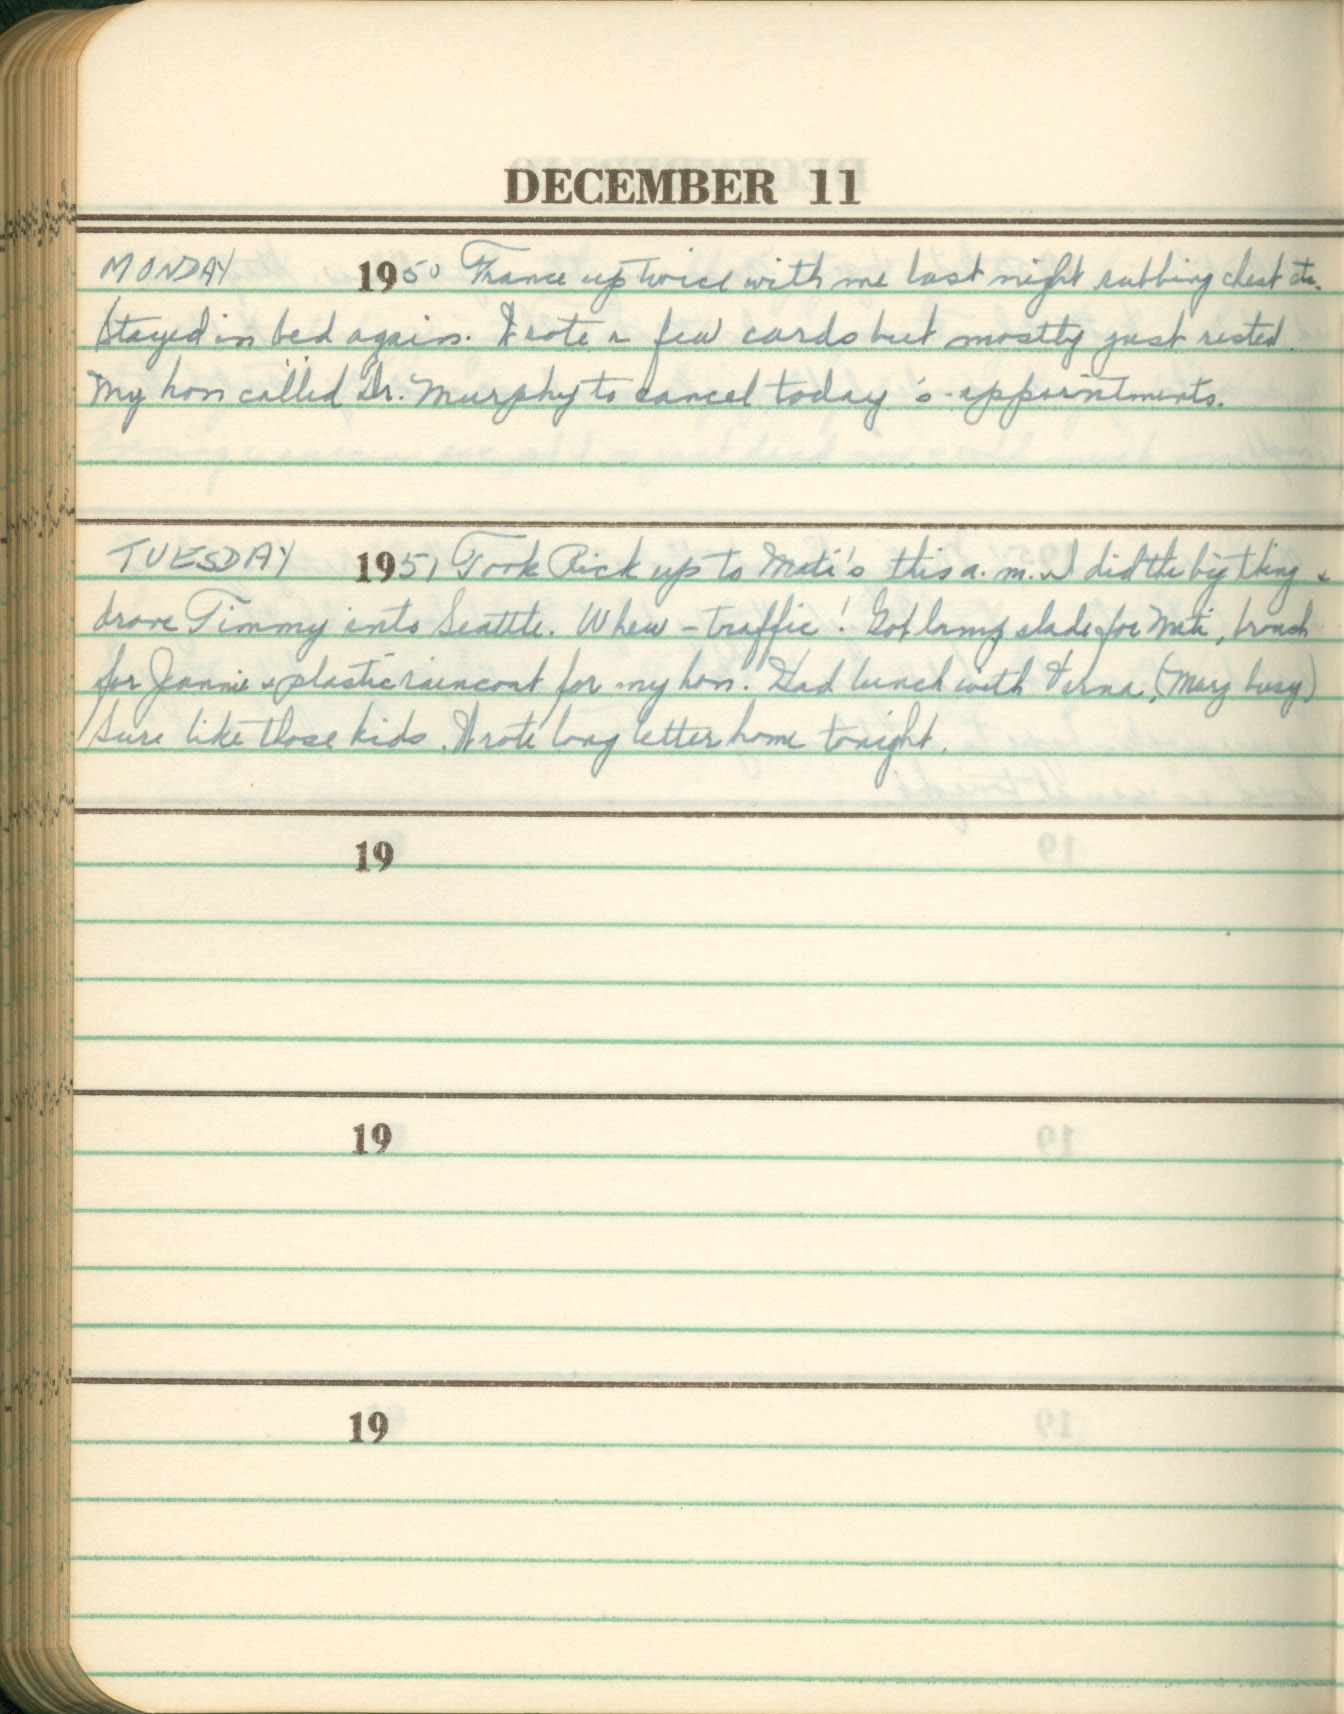 DECEMBER 11
MONDAY 1950 France up twice with me last night rubbing chest etc.
Stayed in bed again. Wrote a few cards but mostly just rested.
My hon called Dr. Murphy to cancel today's appointments.
TUESDAY 1951 Took Rick up to Mati's this a.m. & I did the big thing &
drove Timmy into Seattle. Whew - traffic! Got lovely slade for Mati, broach
for Jeannie & plastic raincoat for my hon. Had lunch with Verna, (Mary busy)
Sure like those kids. Wrote long letter home tonight.
19
19
19